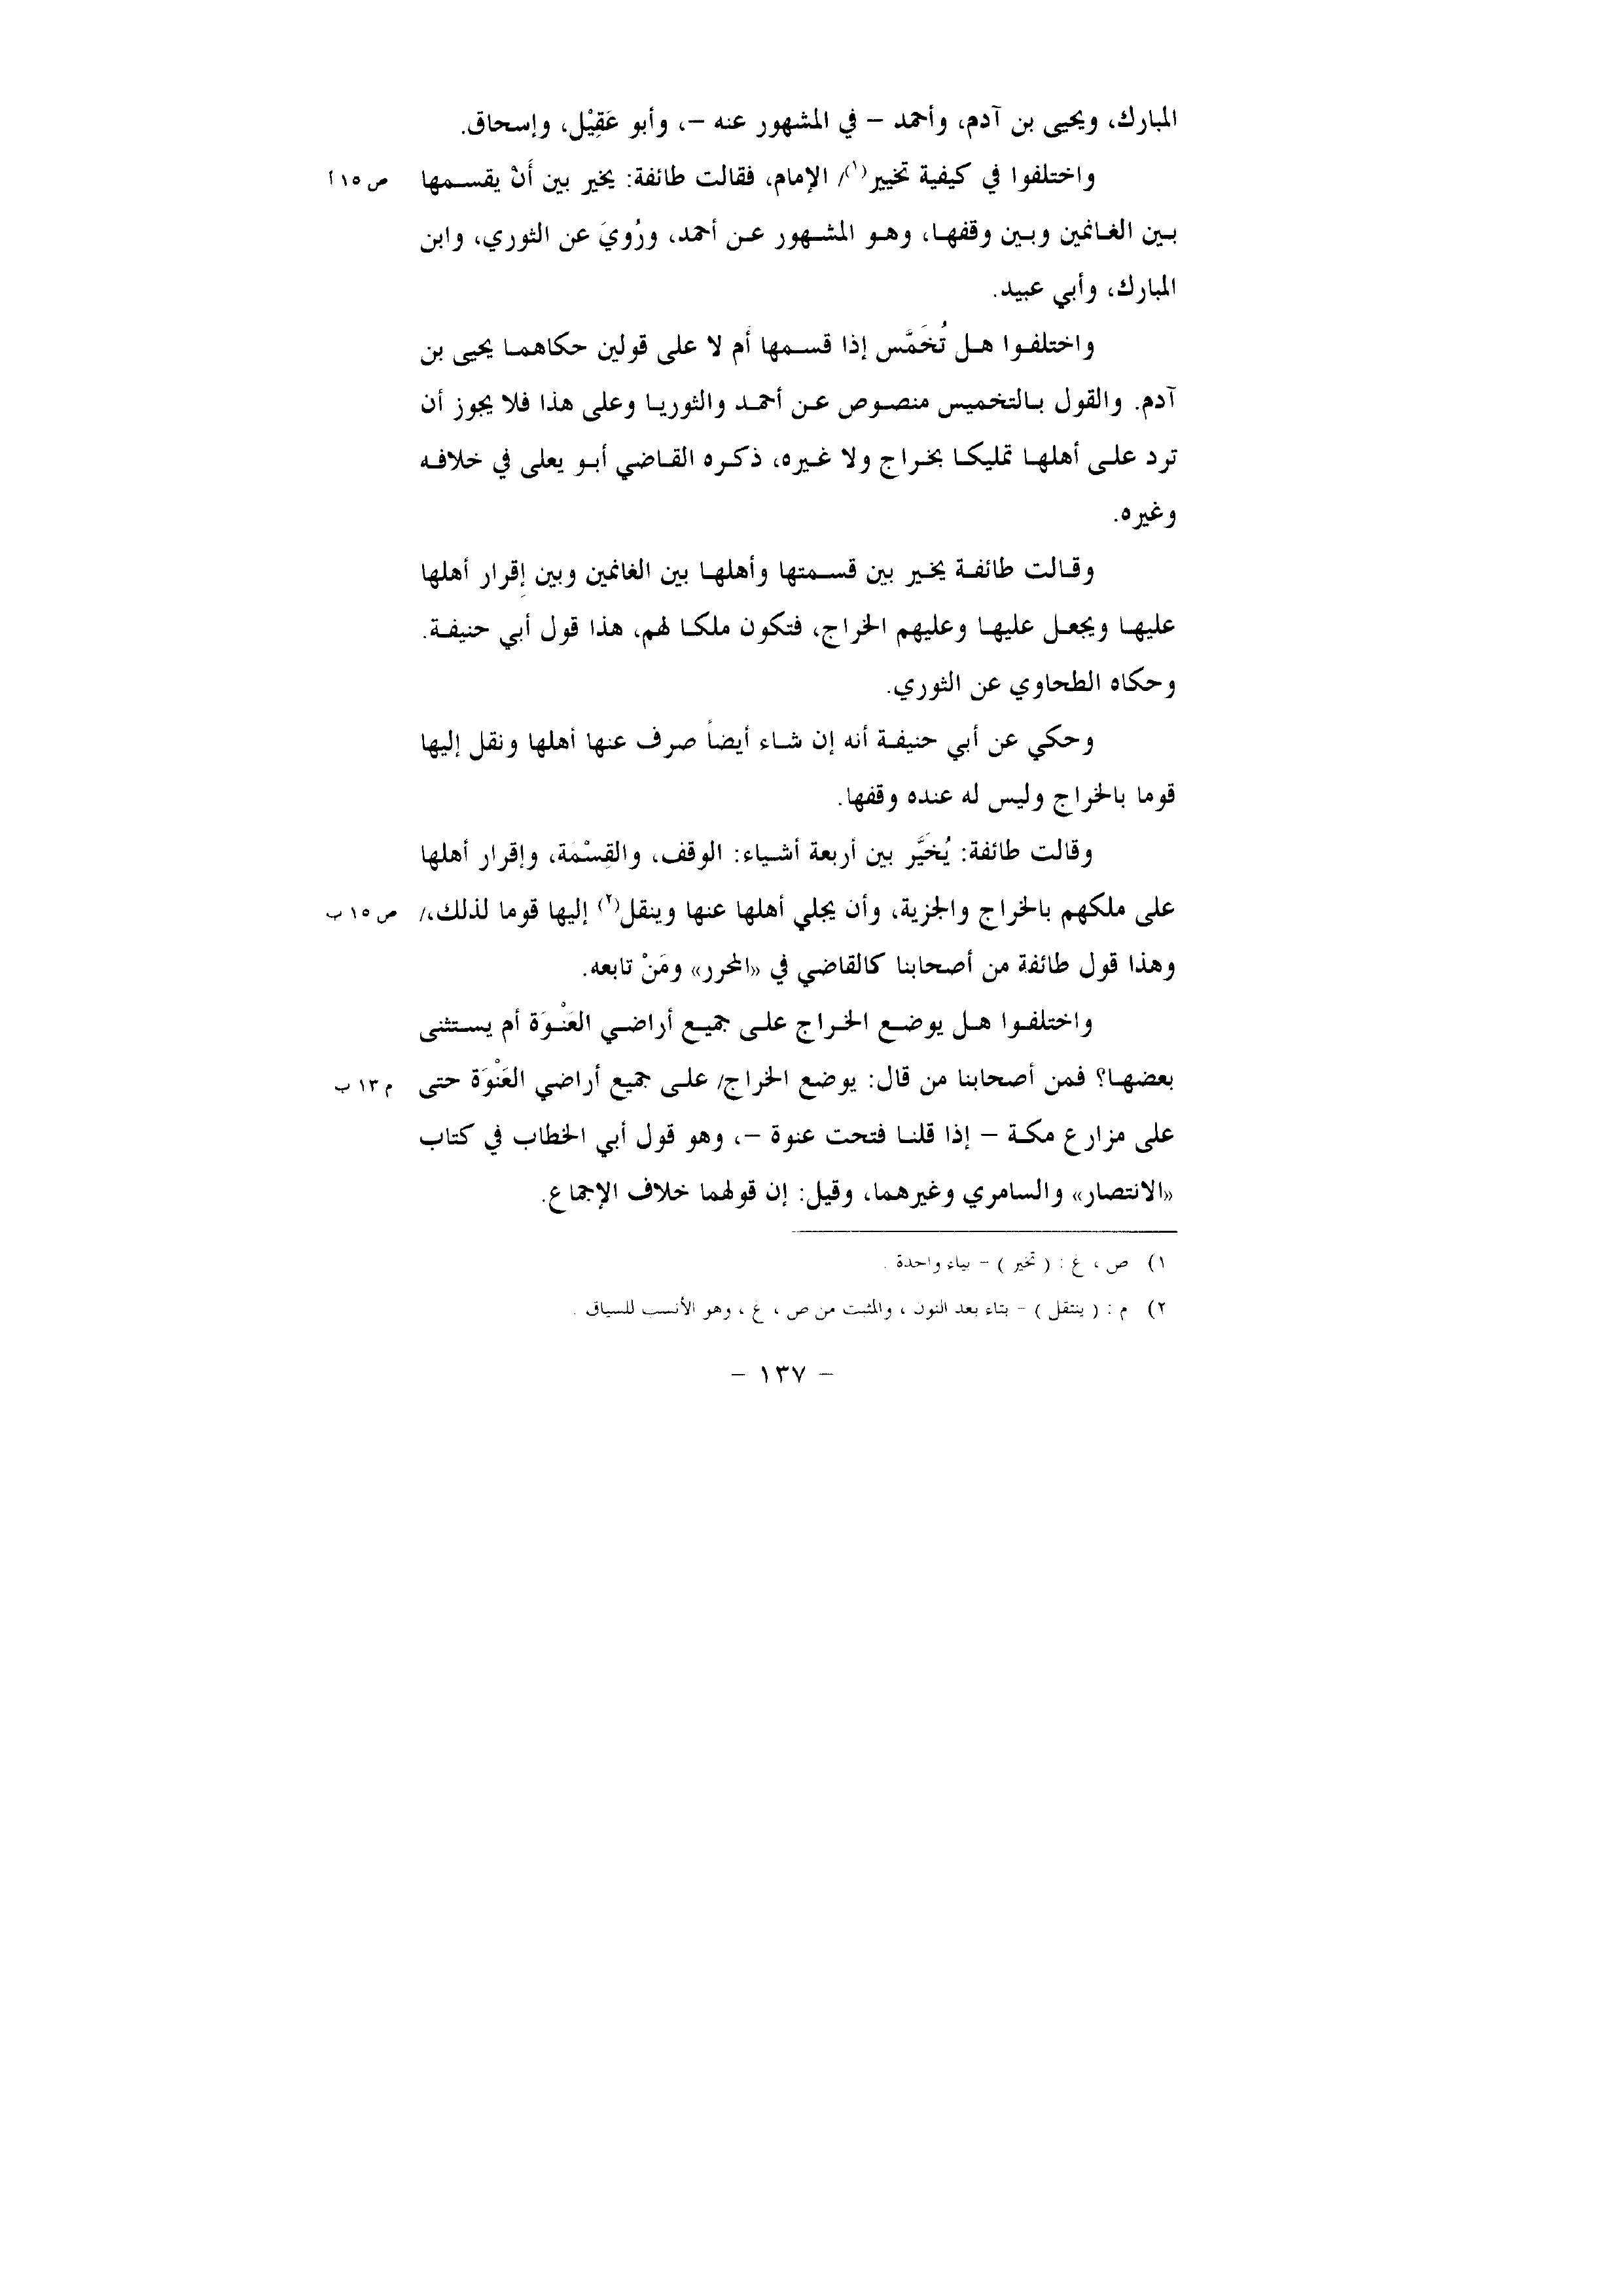 المبارك، ويحيى بن آدم، وأحمد – في المشهور عنه –، وأبو عَقِيْل، وإسحاق.
واختلفوا في كيفية تخيير(١)/ الإمام، فقالت طائفة: يخير بين أَنْ يقسمها ص ١٥ أ
بين الغانمين وبين وقفها، وهو المشهور عن أحمد، ورُويَ عن الثوري، وابن
المبارك، وأبي عبيد.
واختلفوا هل تُخَمَّس إذا قسمها أم لا على قولين حكاهما يحيى بن
آدم. والقول بالتخميس منصوص عن أحمد والثوريا وعلى هذا فلا يجوز أن
ترد على أهلها تمليكا بخراج ولا غيره، ذكره القاضي أبو يعلى في خلافه
وغيره.
وقالت طائفة يخير بين قسمتها وأهلها بين الغانمين وبين إقرار أهلها
عليها ويجعل عليها وعليهم الخراج، فتكون ملكا لهم، هذا قول أبي حنيفة.
وحكاه الطحاوي عن الثوري.
وحكي عن أبي حنيفة أنه إن شاء أيضاً صرف عنها أهلها ونقل إليها
قوما بالخراج وليس له عنده وقفها.
وقالت طائفة: يُخَيَّر بين أربعة أشياء: الوقف، والقِسْمَة، وإقرار أهلها
على ملكهم بالخراج والجزية، وأن يجلي أهلها عنها وينقل(٢) إليها قوما لذلك،/ ص ١٥ ب
وهذا قول طائفة من أصحابنا كالقاضي في «المحرر» ومَنْ تابعه.
واختلفوا هل يوضع الخراج على جميع أراضي العَنْوَة أم يستثنى
بعضها؟ فمن أصحابنا من قال: يوضع الخراج/ على جميع أراضي العَنْوَة حتى م ١٣ ب
على مزارع مكة – إذا قلنا فتحت عنوة –، وهو قول أبي الخطاب في كتاب
«الانتصار» والسامري وغيرهما، وقيل: إن قولهما خلاف الإجماع.
١) ص ، غ : ( تخير ) – بياء واحدة .
٢) م : ( ينتقل ) – بتاء بعد النون ، والمثبت من ص ، غ ، وهو الأنسب للسياق .
– ١٣٧ –